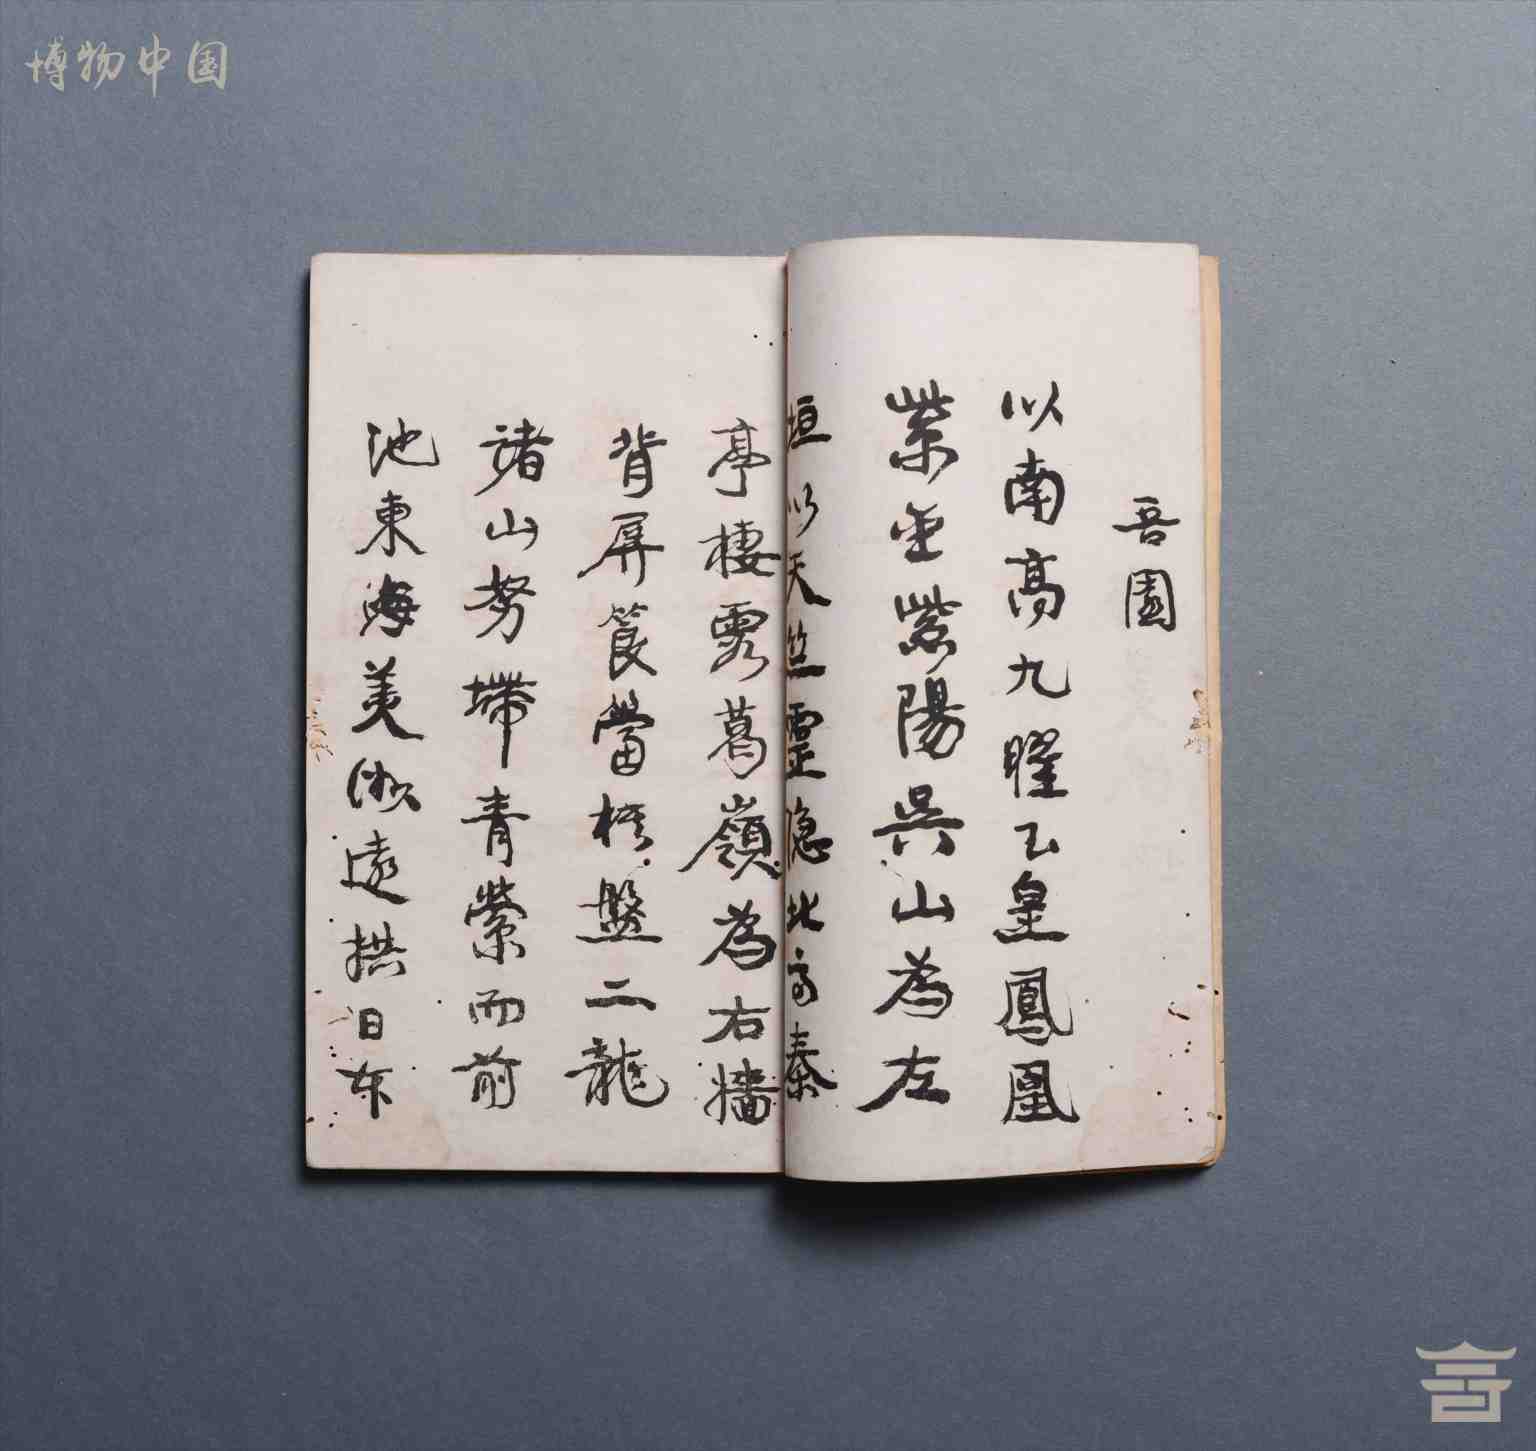 博物中国
吾園
以南高九曜乙皇鳳凰
紫金紫陽吳山為左
垣以天竺靈隐北高秦
亭棲霞葛嶺為右牆
背屏筤簹 盤二龍
諸山 帶青縈而前
池東海美 遠拱日本